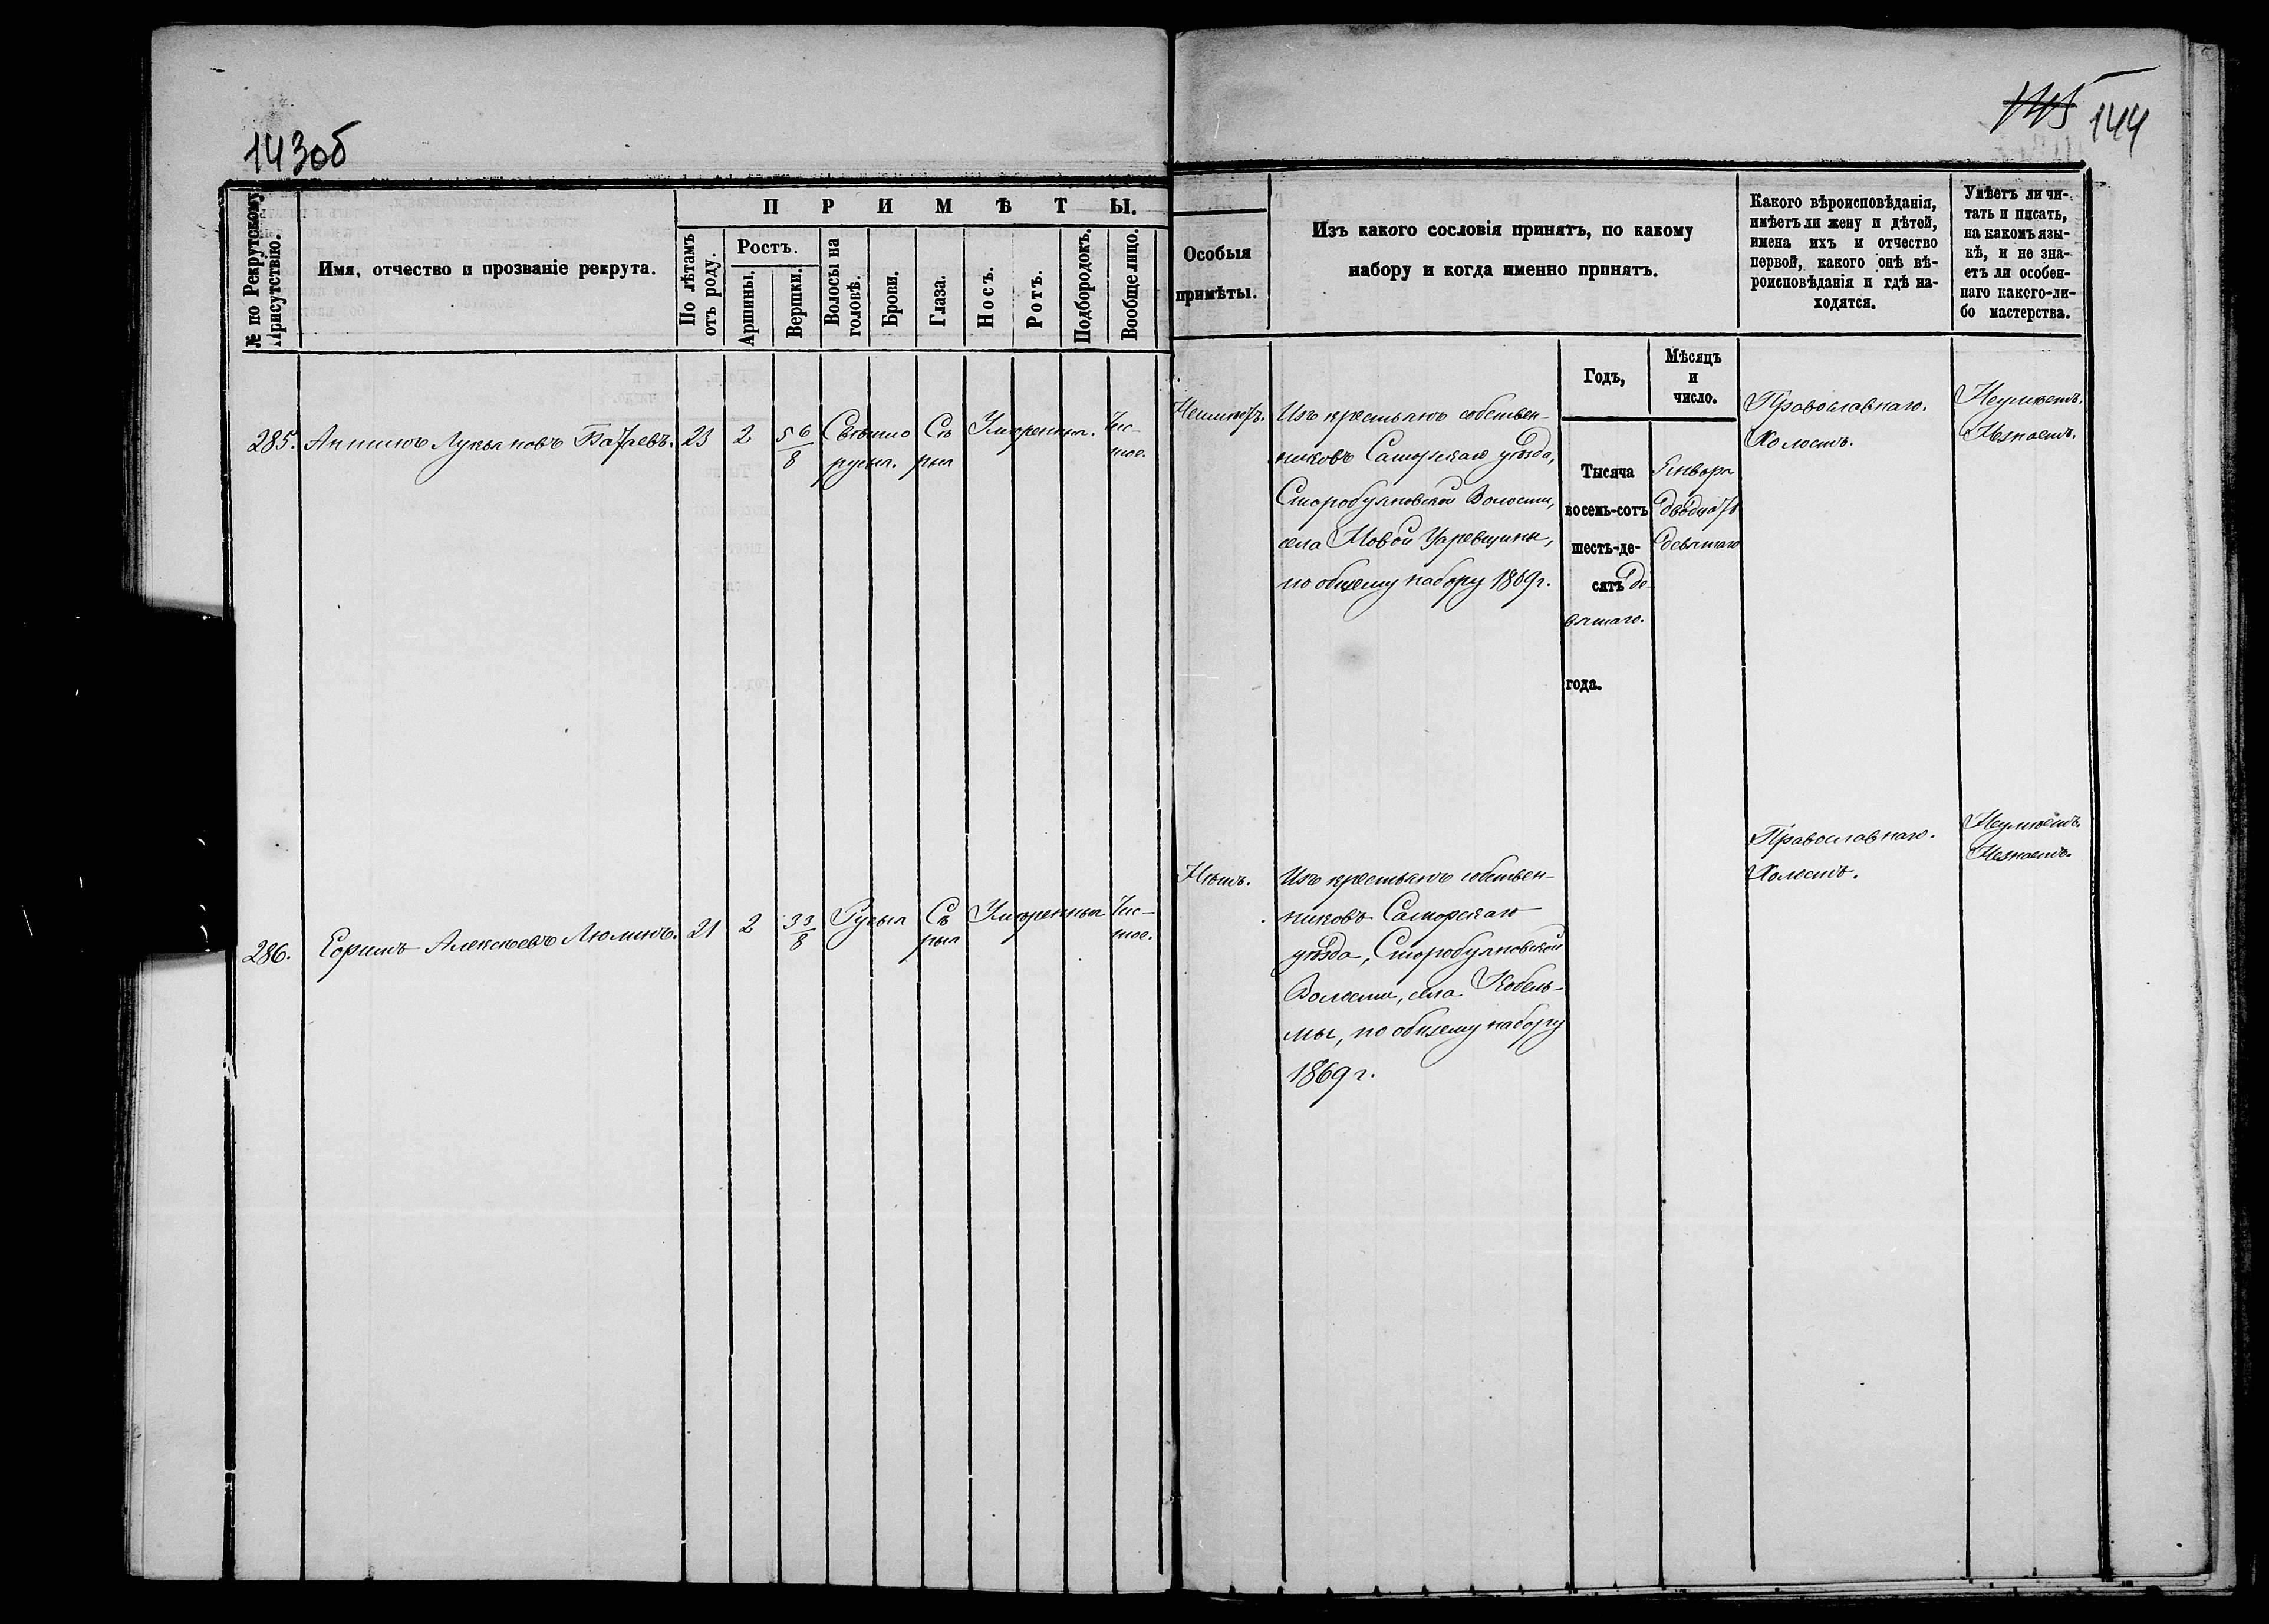 143об
145 144
№ по Рекрутскому Присутствію.
Имя, отчество и прозваніе рекрута.
ПРИМѢТЫ.
По лѣтамъ отъ роду.
Ростъ.
Аршины.
Вершки.
Волосы на головѣ.
Брови.
Глаза.
Носъ.
Ротъ.
Подбородокъ.
Вообще лицо.
Особыя
примѣты.
Изъ какого сословія принятъ, по какому
набору и когда именно принятъ.
Какого вѣроисповѣданія,
имѣетъ ли жену и дѣтей,
имена ихъ и отчество
первой, какого онѣ вѣ-
роисповѣданія и гдѣ на-
ходятся.
Умѣетъ ли чи-
тать и писать,
на какомъ язы-
кѣ, и не зна-
етъ ли особен-
наго какого-ли-
бо мастерства.
Годъ,
Мѣсяцъ
и
число.
285. Лукьяновъ 23 2 5 6/8 Свѣтло
русыя. Сѣ
рыя Умѣренныя. Чис-
тое.
Изъ крестьянъ собствен-
никовъ Самарскаго уѣзда,
Старобуяновской Волости,
села Новой Царевщины,
по общему набору 1869 г.
Тысяча
восемь-сотъ
шесть-де-
сятъ де-
вятаго.
года.
Января
двадцать
девятаго
Православнаго.
Холостъ.
Неумѣетъ.
Незнаетъ.
286. Алексѣевъ 21 2 3 3/8 Русыя Сѣ
рыя Умѣренныя Чис-
тое.
Нѣтъ.
Изъ крестьянъ собствен-
никовъ Самарскаго
уѣзда, Старобуяновской
Волости, села Кобель-
мы, по общему набору
1869 г.
Православнаго.
Холостъ.
Неумѣетъ.
Незнаетъ.